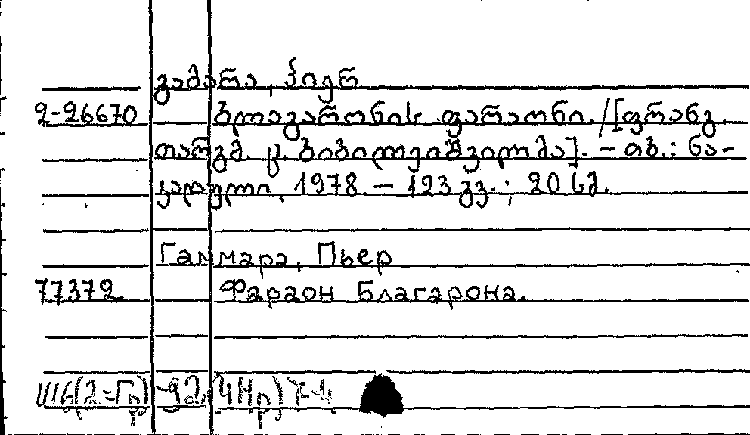 გამარა, პიერ
2-26670 ბლაგარონის ფარაონი. /[ფრანგ.
თარგმ. ც. ბიბილეიშვილმა]. – თბ.: ნა-
კადული, 1978. – 123 გვ. ; 20 სმ.
Гаммара, Пьер
77372 Фараон Благарона.
И(Фр)